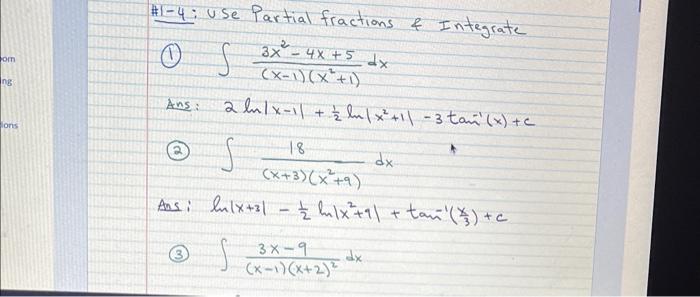 #1-4: Use Partial fractions & Integrate
① ∫ (3x² - 4x + 5)/((x-1)(x²+1)) dx
Ans: 2 ln|x-1| + ½ ln|x²+1| - 3 tan⁻¹(x) + c
② ∫ 18/((x+3)(x²+9)) dx
Ans: ln|x+3| - ½ ln|x²+9| + tan⁻¹(x/3) + c
③ ∫ (3x-9)/((x-1)(x+2)²) dx